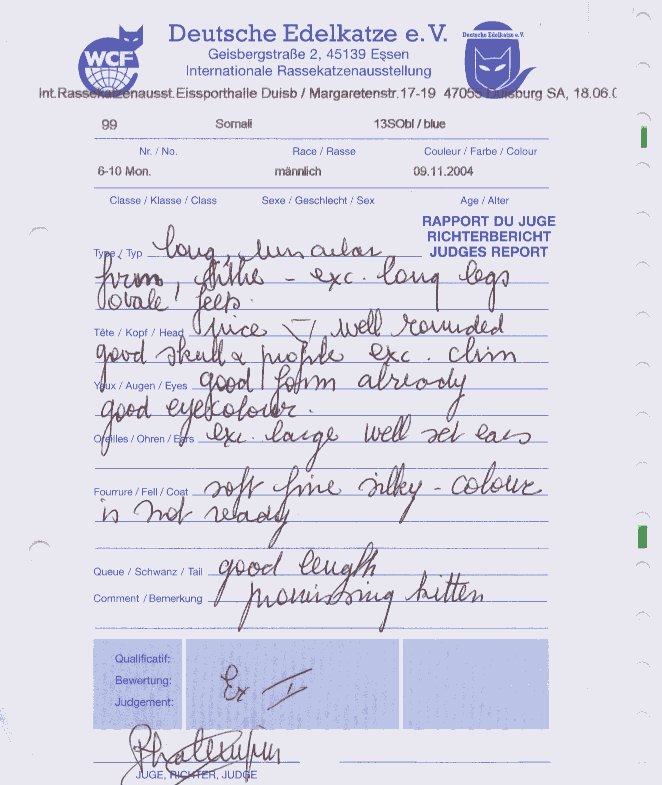 WCF
Deutsche Edelkatze e.V.
Geisbergstraße 2, 45139 Essen
Internationale Rassekatzenausstellung
Deutsche Edelkatze e.V.
int.Rassekatzenausst.Eissporthalle Duisb / Margaretenstr.17-19 47055 Duisburg SA, 18.06.0
99 Somali 13SObl / blue
Nr. / No. Race / Rasse Couleur / Farbe / Colour
6-10 Mon. männlich 09.11.2004
Classe / Klasse / Class Sexe / Geschlecht / Sex Age / Alter
RAPPORT DU JUGE
RICHTERBERICHT
JUDGES REPORT
Type / Typ long, muscular
firm, lithe - exc. long legs
ovale
Tête / Kopf / Head nice well rounded
good skull & profile exc. chin
Yeux / Augen / Eyes good form already
good eyecolour.
Oreilles / Ohren / Ears exc. large well set ears
Fourrure / Fell / Coat soft fine silky - colour
is not ready
Queue / Schwanz / Tail good length
Comment / Bemerkung promissing kitten
Qualificatif:
Bewertung: Ex I
Judgement:
JUGE, RICHTER, JUDGE